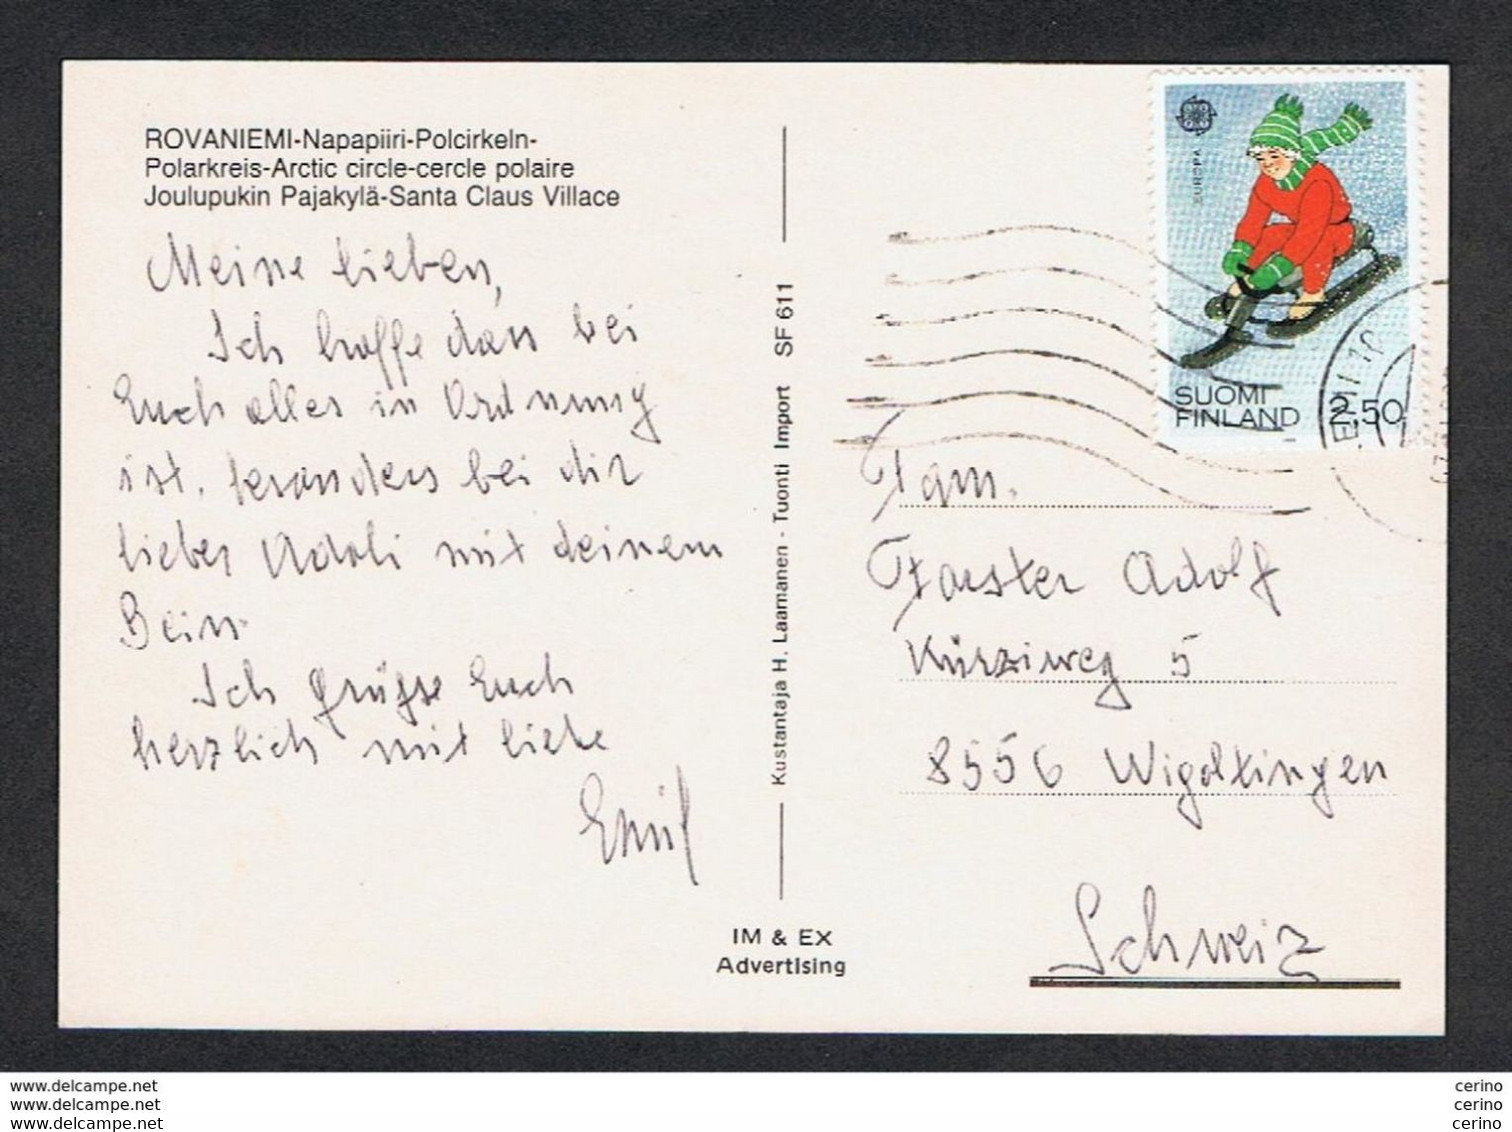 ROVANIEMI-Napapiiri-Polcirkeln-
Polarkreis-Arctic circle-cercle polaire
Joulupukin Pajakylä-Santa Claus Villace
Meine lieben,
Ich hoffe dass bei
Euch alles in Ordnung
ist, besonders bei dir
lieber Adoli mit deinem
Bein.
Ich grüsse Euch
herzlich mit liebe
Emil
Kustantaja H. Laamanen - Tuonti Import SF 611
IM & EX
Advertising
EUROPA
SUOMI
FINLAND 2,50
Fam.
Forster Adolf
Kürziweg 5
8556 Wigoltingen
Schweiz
www.delcampe.net
www.delcampe.net
www.delcampe.net
cerino
cerino
cerino